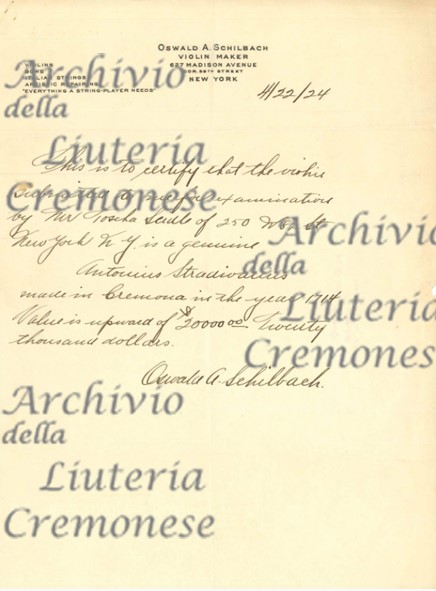 OSWALD A. SCHILBACH
VIOLIN MAKER
627 MADISON AVENUE
COR. 59TH STREET
NEW YORK
VIOLINS
BOWS
ITALIAN STRINGS
ARTISTIC REPAIRING
"EVERYTHING A STRING-PLAYER NEEDS"
4/22/24
This is to certify that the violin
submitted to me for examination
by Mr Toscha Seidel of 250 St
New York N.Y. is a genuine
Antonius Stradivarius
made in Cremona in the year 1714
Value is upward of $20000.00 Twenty
thousand dollars.
Oswald A Schilbach.
Archivio
della
Liuteria
Cremonese
Archivio
della
Liuteria
Cremonese
Archivio
della
Liuteria
Cremonese